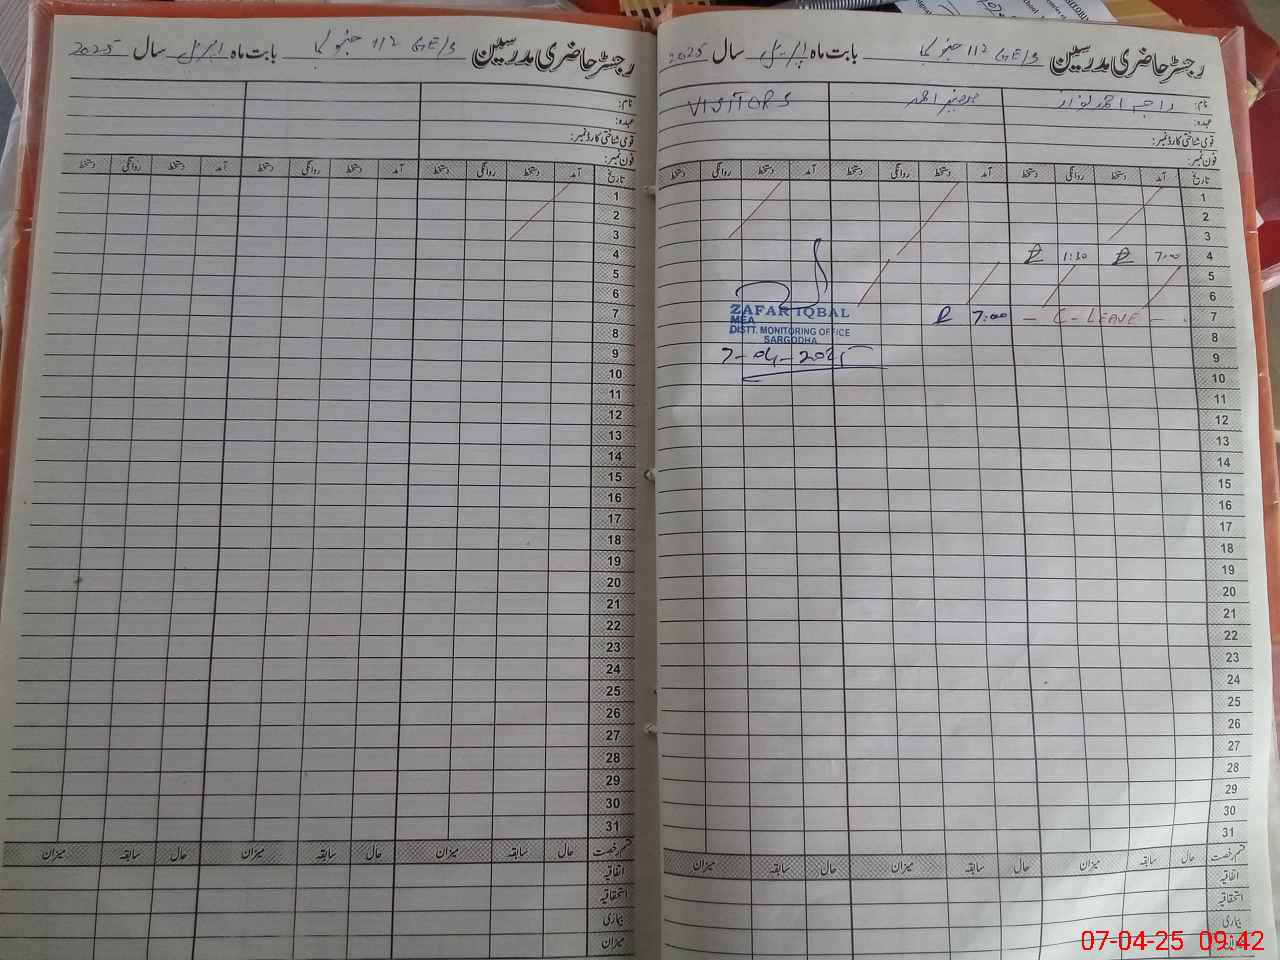 رجسٹر حاضری مدرسین GE/S 112 جنوبی بابت ماہ اپریل سال 2025
نام: راجہ احمد نواز
VISITORS
عہدہ:
قومی شناختی کارڈ نمبر:
فون نمبر:
تاریخ آمد دستخط روانگی دستخط آمد دستخط روانگی دستخط آمد دستخط روانگی دستخط
1
2
3
4 7:00 1:30
5
6
7 - C-LEAVE - 7:00
8
9
10
11
12
13
14
15
16
17
18
19
20
21
22
23
24
25
26
27
28
29
30
31
ZAFAR IQBAL
MEA
DISTT. MONITORING OFFICE
SARGODHA
7-04-2025
قسم رخصت حال سابقہ میزان حال سابقہ میزان حال سابقہ میزان
اتفاقیہ
استحقاقیہ
بیماری
رجسٹر حاضری مدرسین GE/S 112 جنوبی بابت ماہ اپریل سال 2025
نام:
عہدہ:
قومی شناختی کارڈ نمبر:
فون نمبر:
تاریخ آمد دستخط روانگی دستخط آمد دستخط روانگی دستخط آمد دستخط روانگی دستخط
1
2
3
4
5
6
7
8
9
10
11
12
13
14
15
16
17
18
19
20
21
22
23
24
25
26
27
28
29
30
31
قسم رخصت حال سابقہ میزان حال سابقہ میزان حال سابقہ میزان
اتفاقیہ
استحقاقیہ
بیماری
میزان
07-04-25 09:42